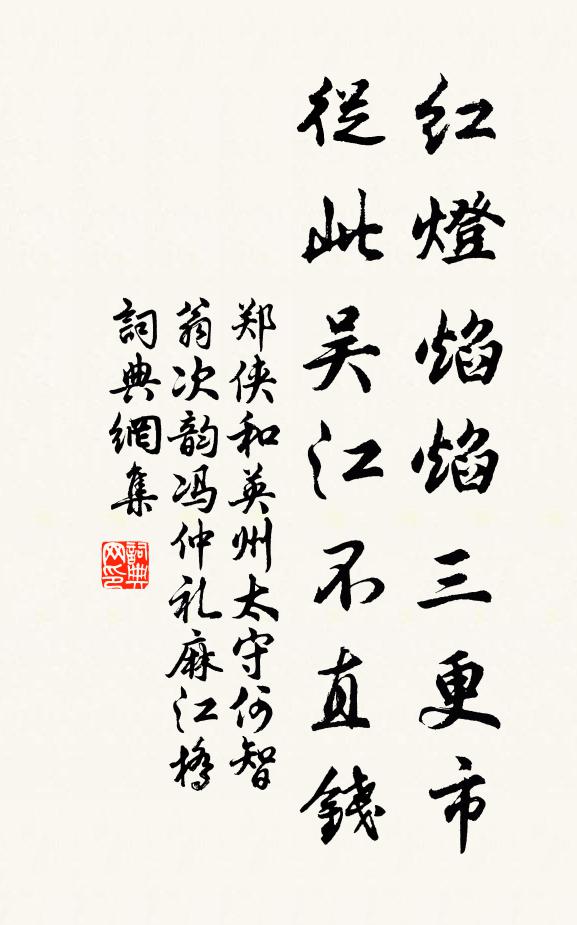 红燈焰焰三更市
從此吴江不直錢
郑侠和英州太守何智
翁次韵冯仲礼麻江橋
詞典網集
詞典网印